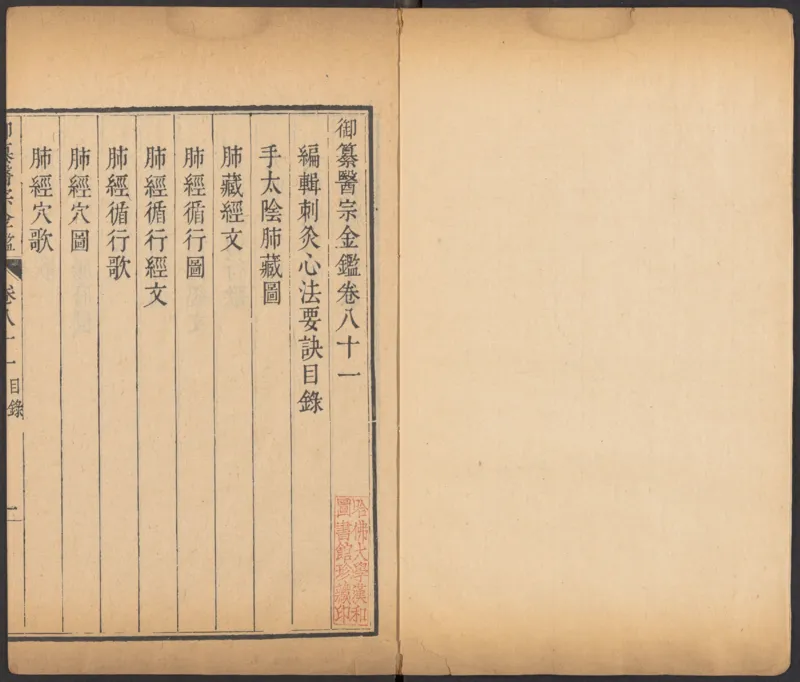 御纂醫宗金鑑卷八十一
編輯刺灸心法要訣目錄
手太陰肺藏圖
肺藏經文
肺經循行圖
肺經循行經文
肺經循行歌
肺經穴圖
肺經穴歌
御纂醫宗金鑑 卷八十一 目錄 一
哈佛大學漢和
圖書館珍藏印